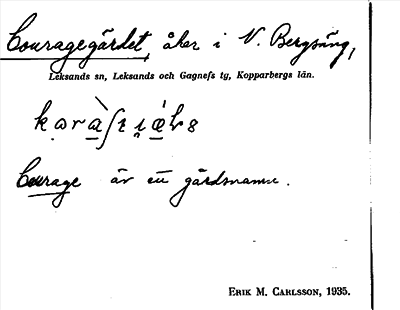 Couragegärdet, åker i V. Bergsäng,
Leksands sn, Leksands och Gagnefs tg, Kopparbergs län.
Courage är ett gårdsnamn.
ERIK M. CARLSSON, 1935.